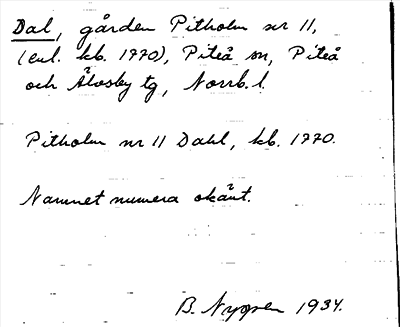 Dal, gården Pitholm nr 11,
(enl. kb. 1770), Piteå sn, Piteå
och Älvsby tg, Norrb. l.
Pitholm nr 11 Dahl, kb. 1770.
Namnet numera okänt.
B. Nygren 1934.